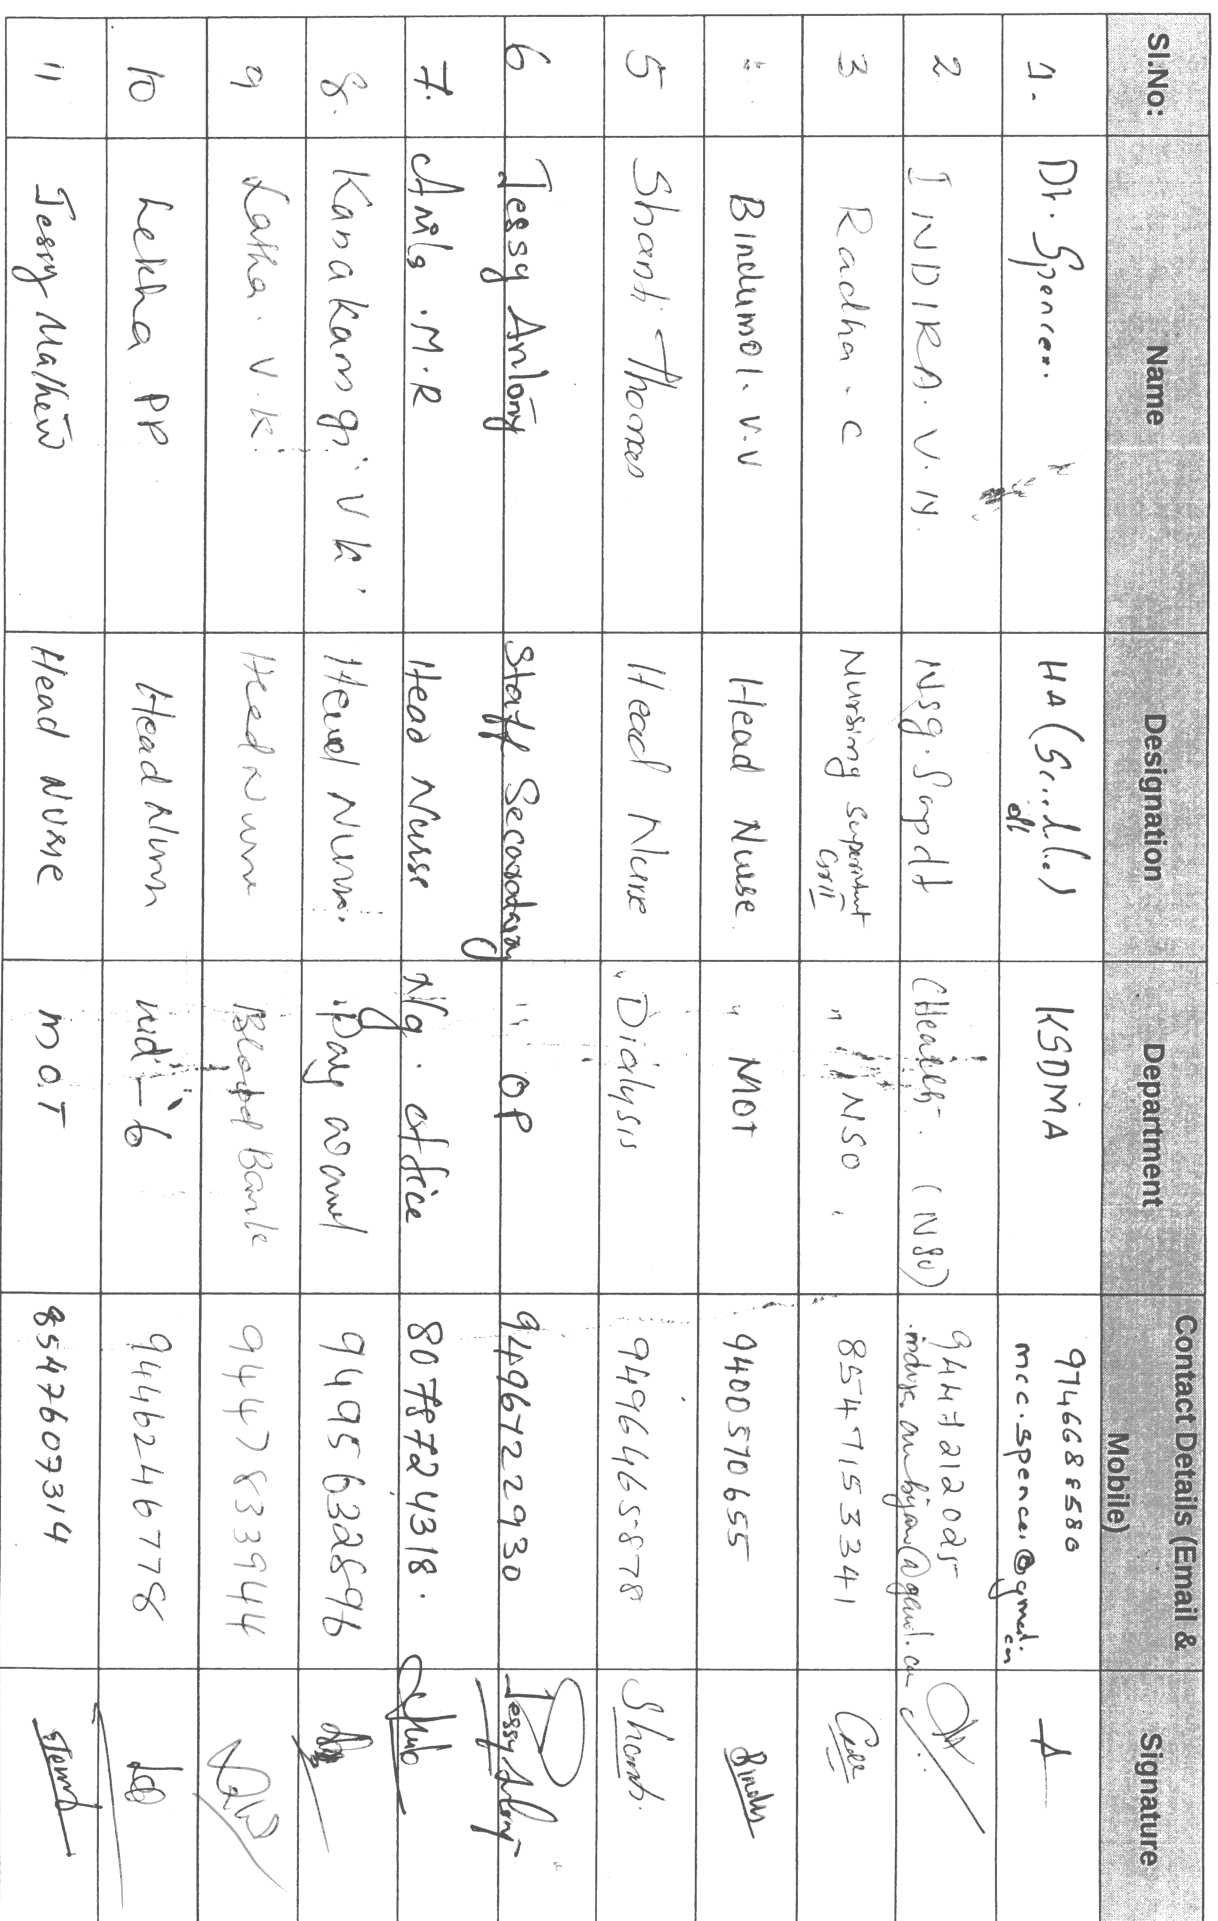 Sl.No: Name Designation Department Contact Details (Email & Mobile) Signature
1. Dr. Spencer. HA (
KSDMA 9746688580
mcc.spencer@gmail.com
2 INDIRA. V. N. Nsg. Supdt (Health. (NSO) 9447212025
3 Radha. C Nursing Superintendent
Gr II
" NSO " 8547153341
Bindumol. V.V Head Nurse " MOT 9400570655 Bindu
5 Shanti Thomas Head Nurse " Dialysis 9496465878 Shanti.
6 Jessy Antony Staff Secretary " OP 9496722930 Jessy Antony
7. Anila. M. R Head Nurse N/g. office 8078724318.
8. Kanakamgi. V K. Head Nurse. Day 9495632896
9 Latha. V. K. Head Nurse Blood Bank 9447833944
10 Lekha PP Head Nurse wd-6 9446246778
11 Jessy Mathew Head Nurse M O.T 8547607314